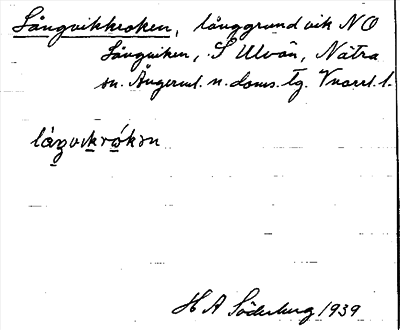 Långvikkroken, långgrund vik NO
Långviken, S Ulvön, Nätra
sn. Ångerml. n. doms. tg. Vnorrl. l.
låŋvikrωkən
H A Söderberg 1939